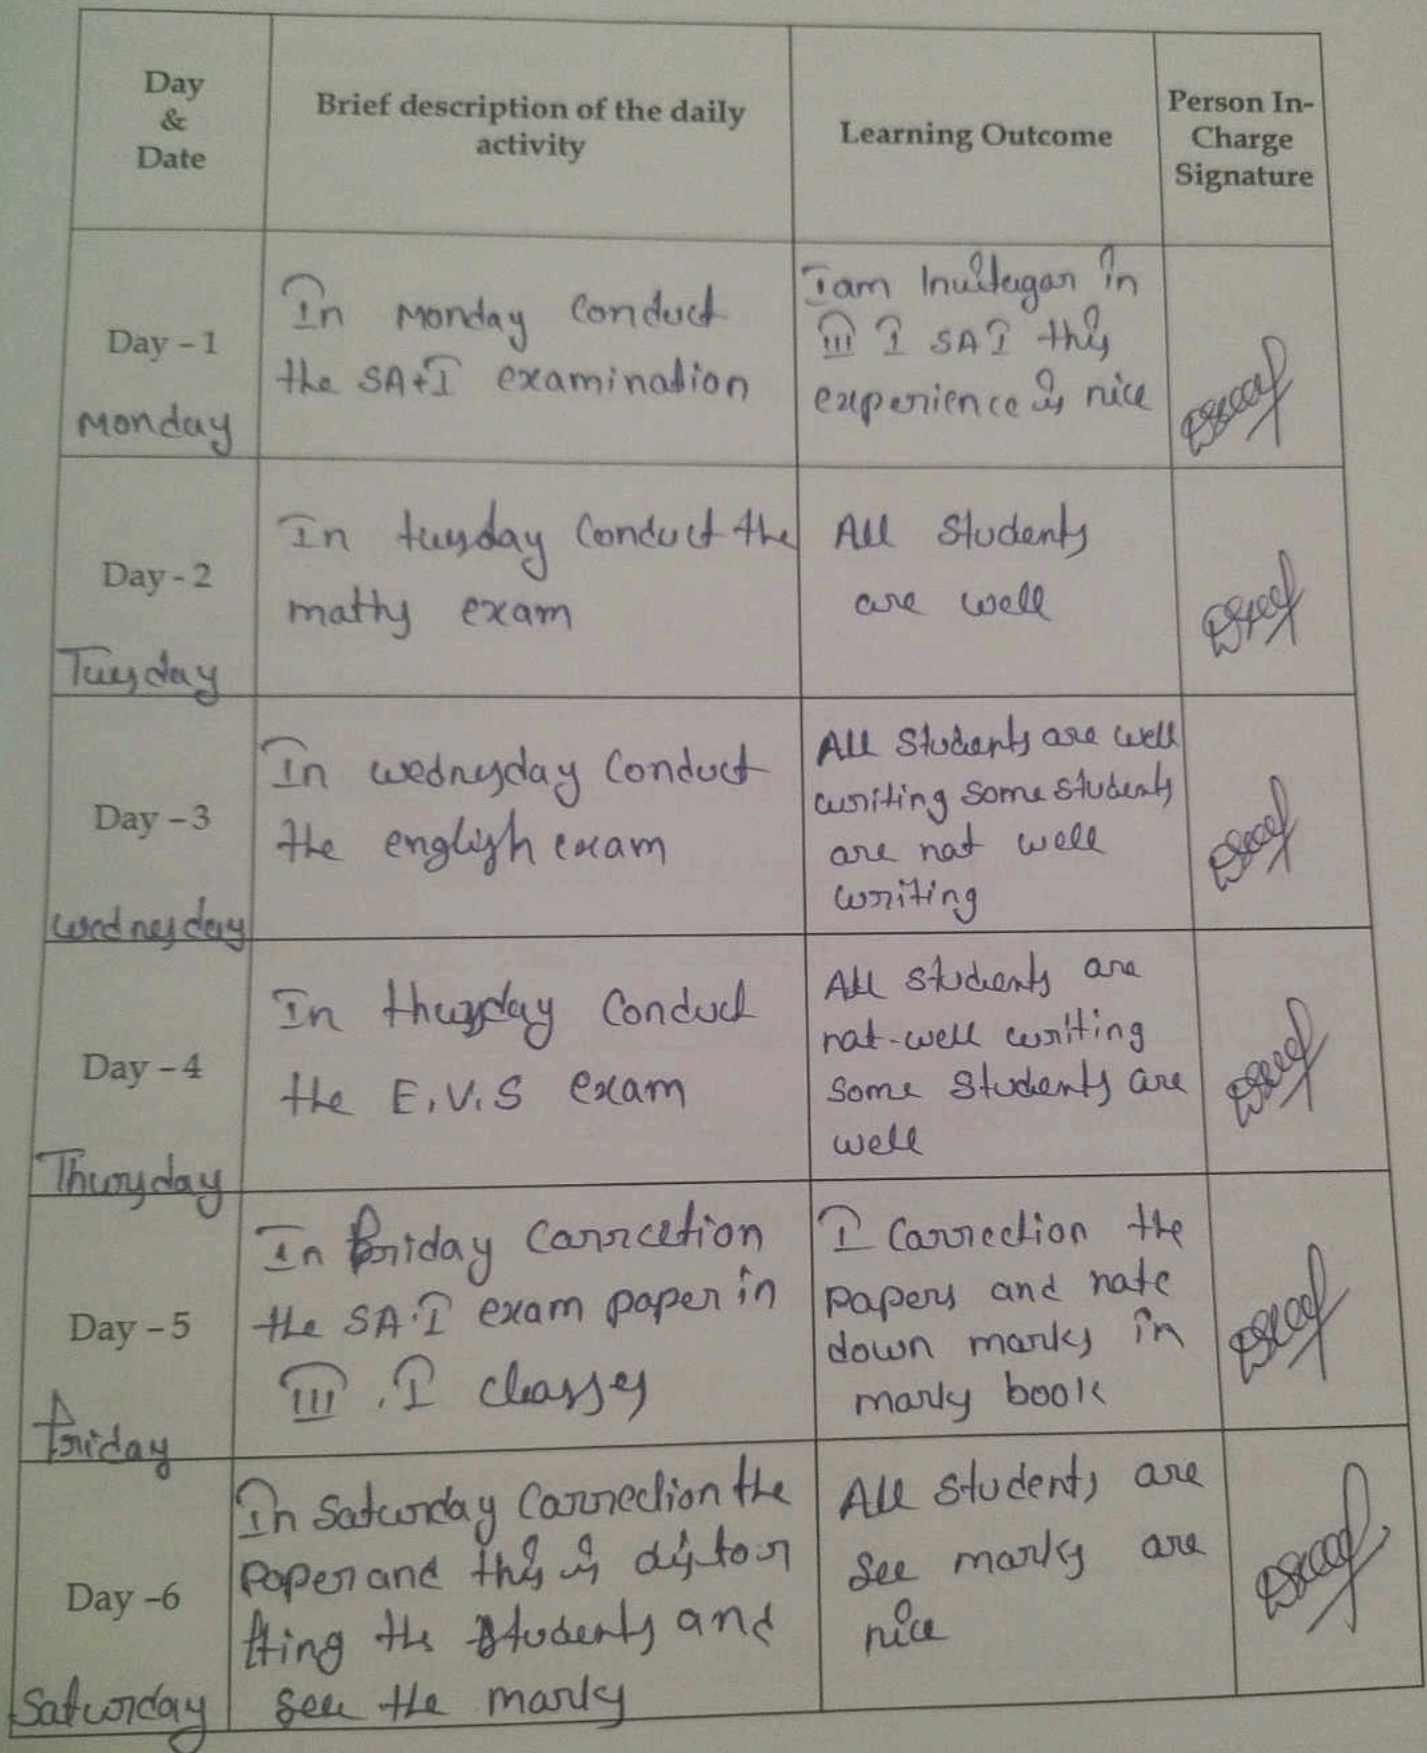 Day
&
Date
Brief description of the daily
activity
Learning Outcome
Person In-
Charge
Signature
Day - 1
Monday
In Monday Conduct
the SA+I examination
I am in
III I SAI this
experience is nice
Day - 2
Tuesday
In tuesday Conduct the
maths exam
All Students
are well
Day - 3
wednesday
In wednesday Conduct
the english exam
All Students are well
writing some students
are nat well
writing
Day - 4
Thursday
In thursday Conduct
the E.V.S exam
All students are
nat-well writing
some students are
well
Day - 5
friday
In friday Carrcetion
the SA.I exam paper in
III . I classes
I Carrection the
papers and nate
down marks in
marks book
Day -6
Saturday
In Saturday Carrection the
paper and this is
the students and
see the marks
All students are
see marks are
nice